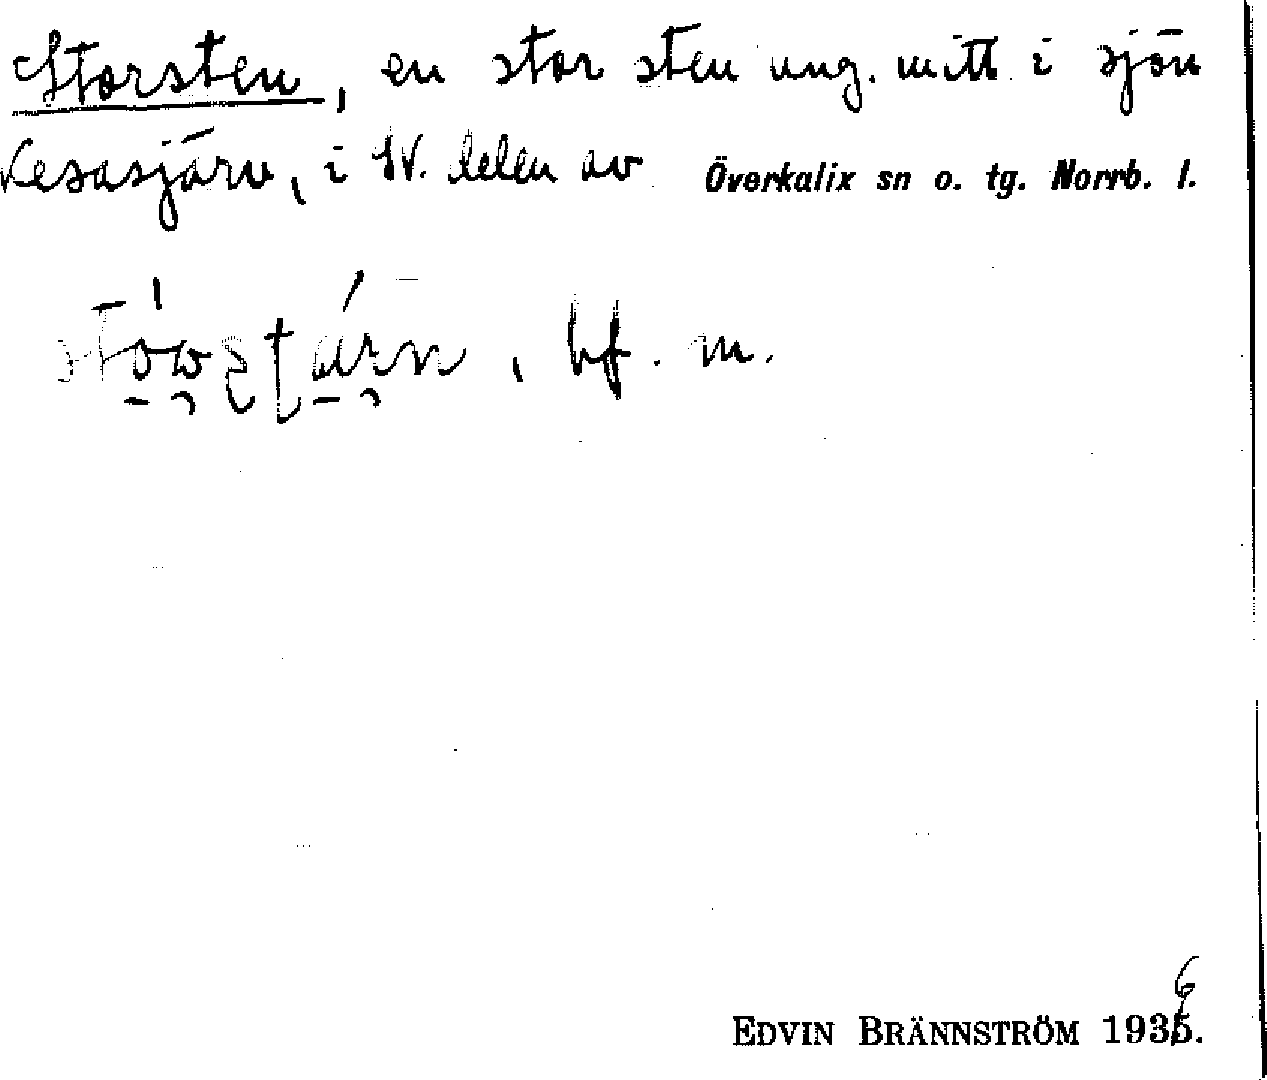 Storsten, en stor sten ung. mitt i sjön
Kesasjärv, i SV. delen av Överkalix sn o. tg. Norrb. l.
bf. m.
6
EDVIN BRÄNNSTRÖM 1935.